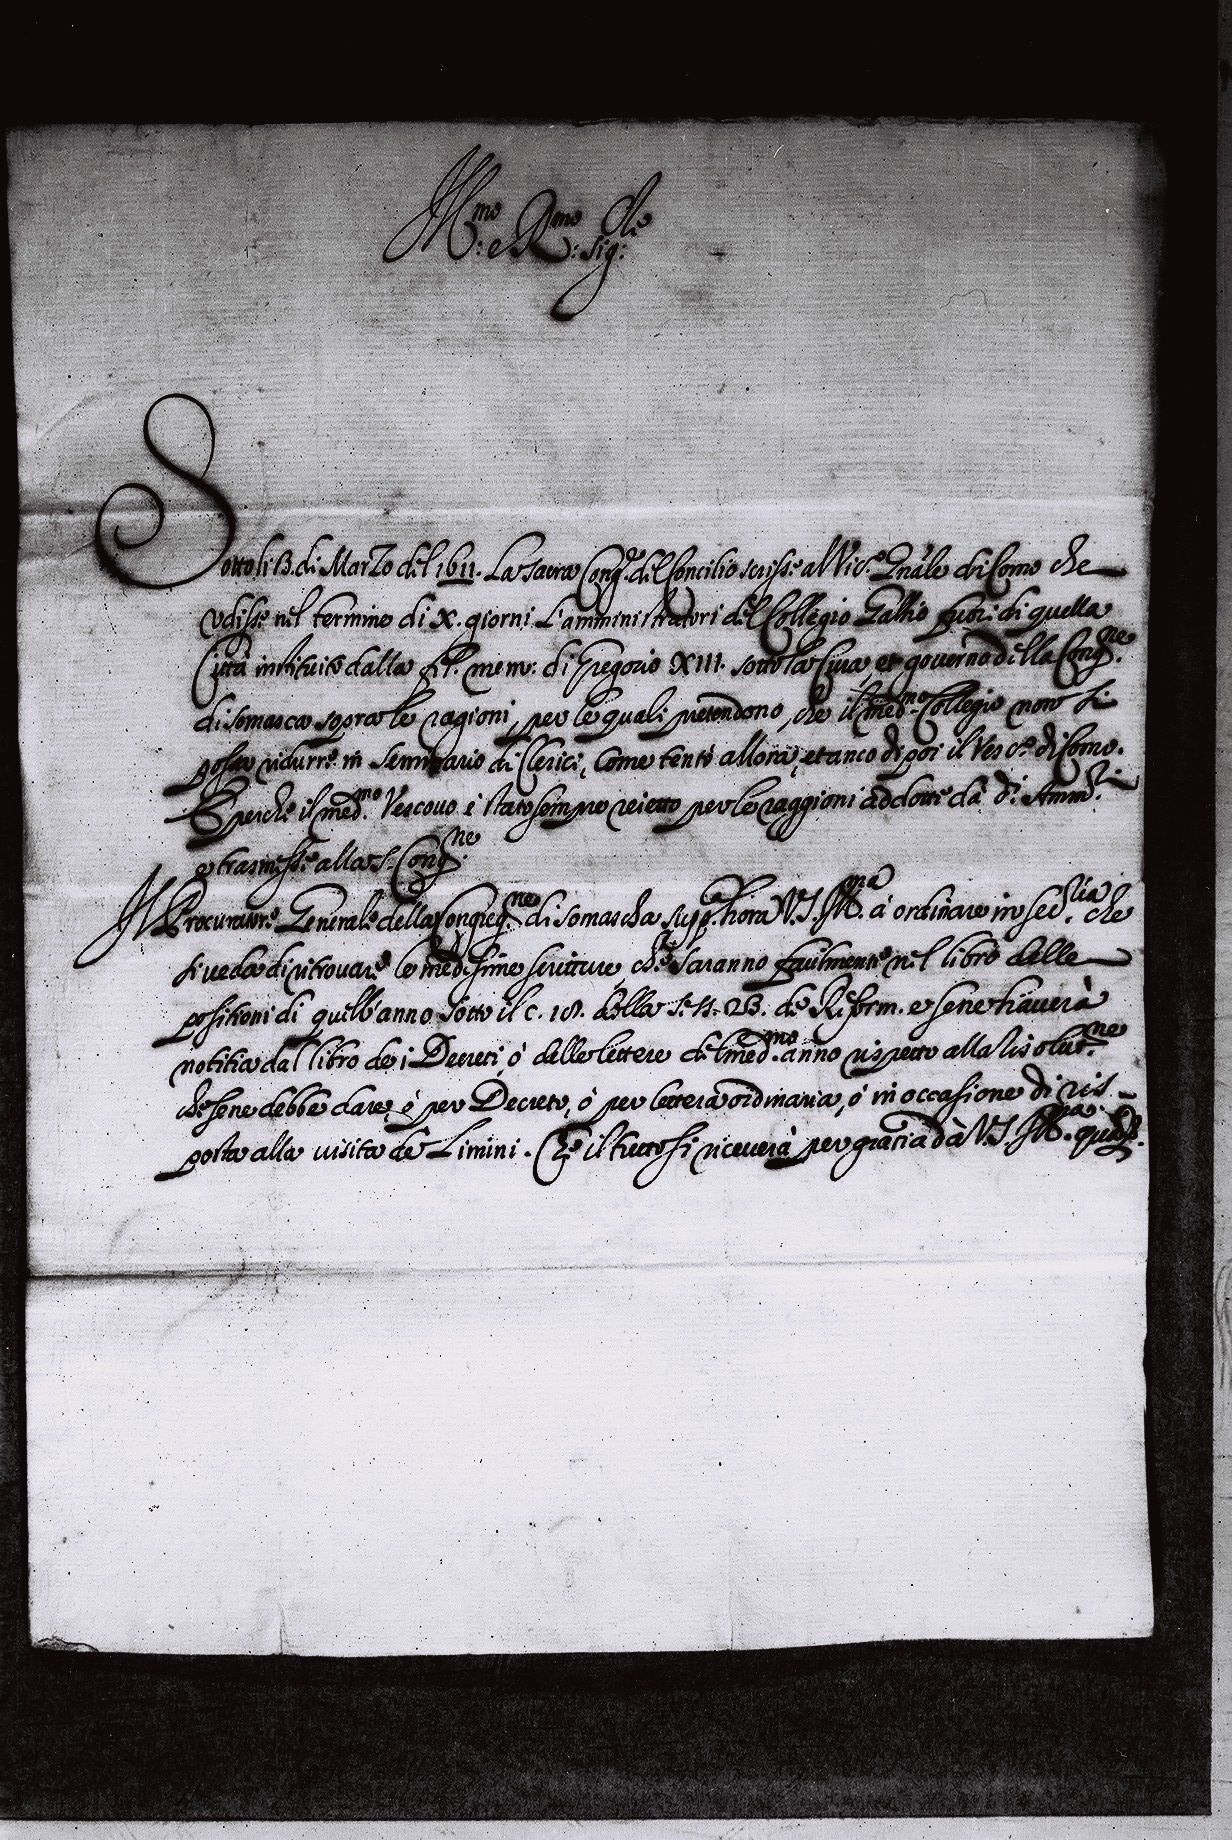 Ill.mo e R.mo Sig.re
Sotto li 13. di Marzo del 1611. La Sacra Cong.ne del Concilio scrisse al Vic.o Gn̄ale di Como che
udisse nel termine di X. giorni L'amministratori del Collegio Gallio fuori di quella
Città instituito dalla fel. mem. di Gregorio XIII. sotto la Cura, et governo della Cong.ne
di Somasca sopra le ragioni, per le quali pretendono, che il med.mo Collegio non si
possa ridurre in Seminario di Clerici, Come tentò allora, et anco di poi il Vesc.o di Como.
E perche il med.mo Vescovo è stato sempre reietto per le raggioni addotte dà d.i Ammi.ri
e trasmesse alla S. Cong.ne
Il Procuratore Generale della Congreg.ne di Somascha supp.ca hora V.S. Ill.ma à ordinare in Seg.ria che
si veda di ritrovare le medesime scritture, che saranno facilmente nel libro delle
positioni di quell'anno sotto il c. 18. della S.ss. 23. de Reform. e se ne haverà
notitia dal libro de i Decreti, ò delle lettere del med.mo anno rispetto alla risolut.ne
che se ne debbe dare, ò per Decreto, ò per lettera ordinaria, ò in occasione di ris-
posta alla visita de Limini. Che il tutto si riceverà per gratia dà V.S. Ill.ma